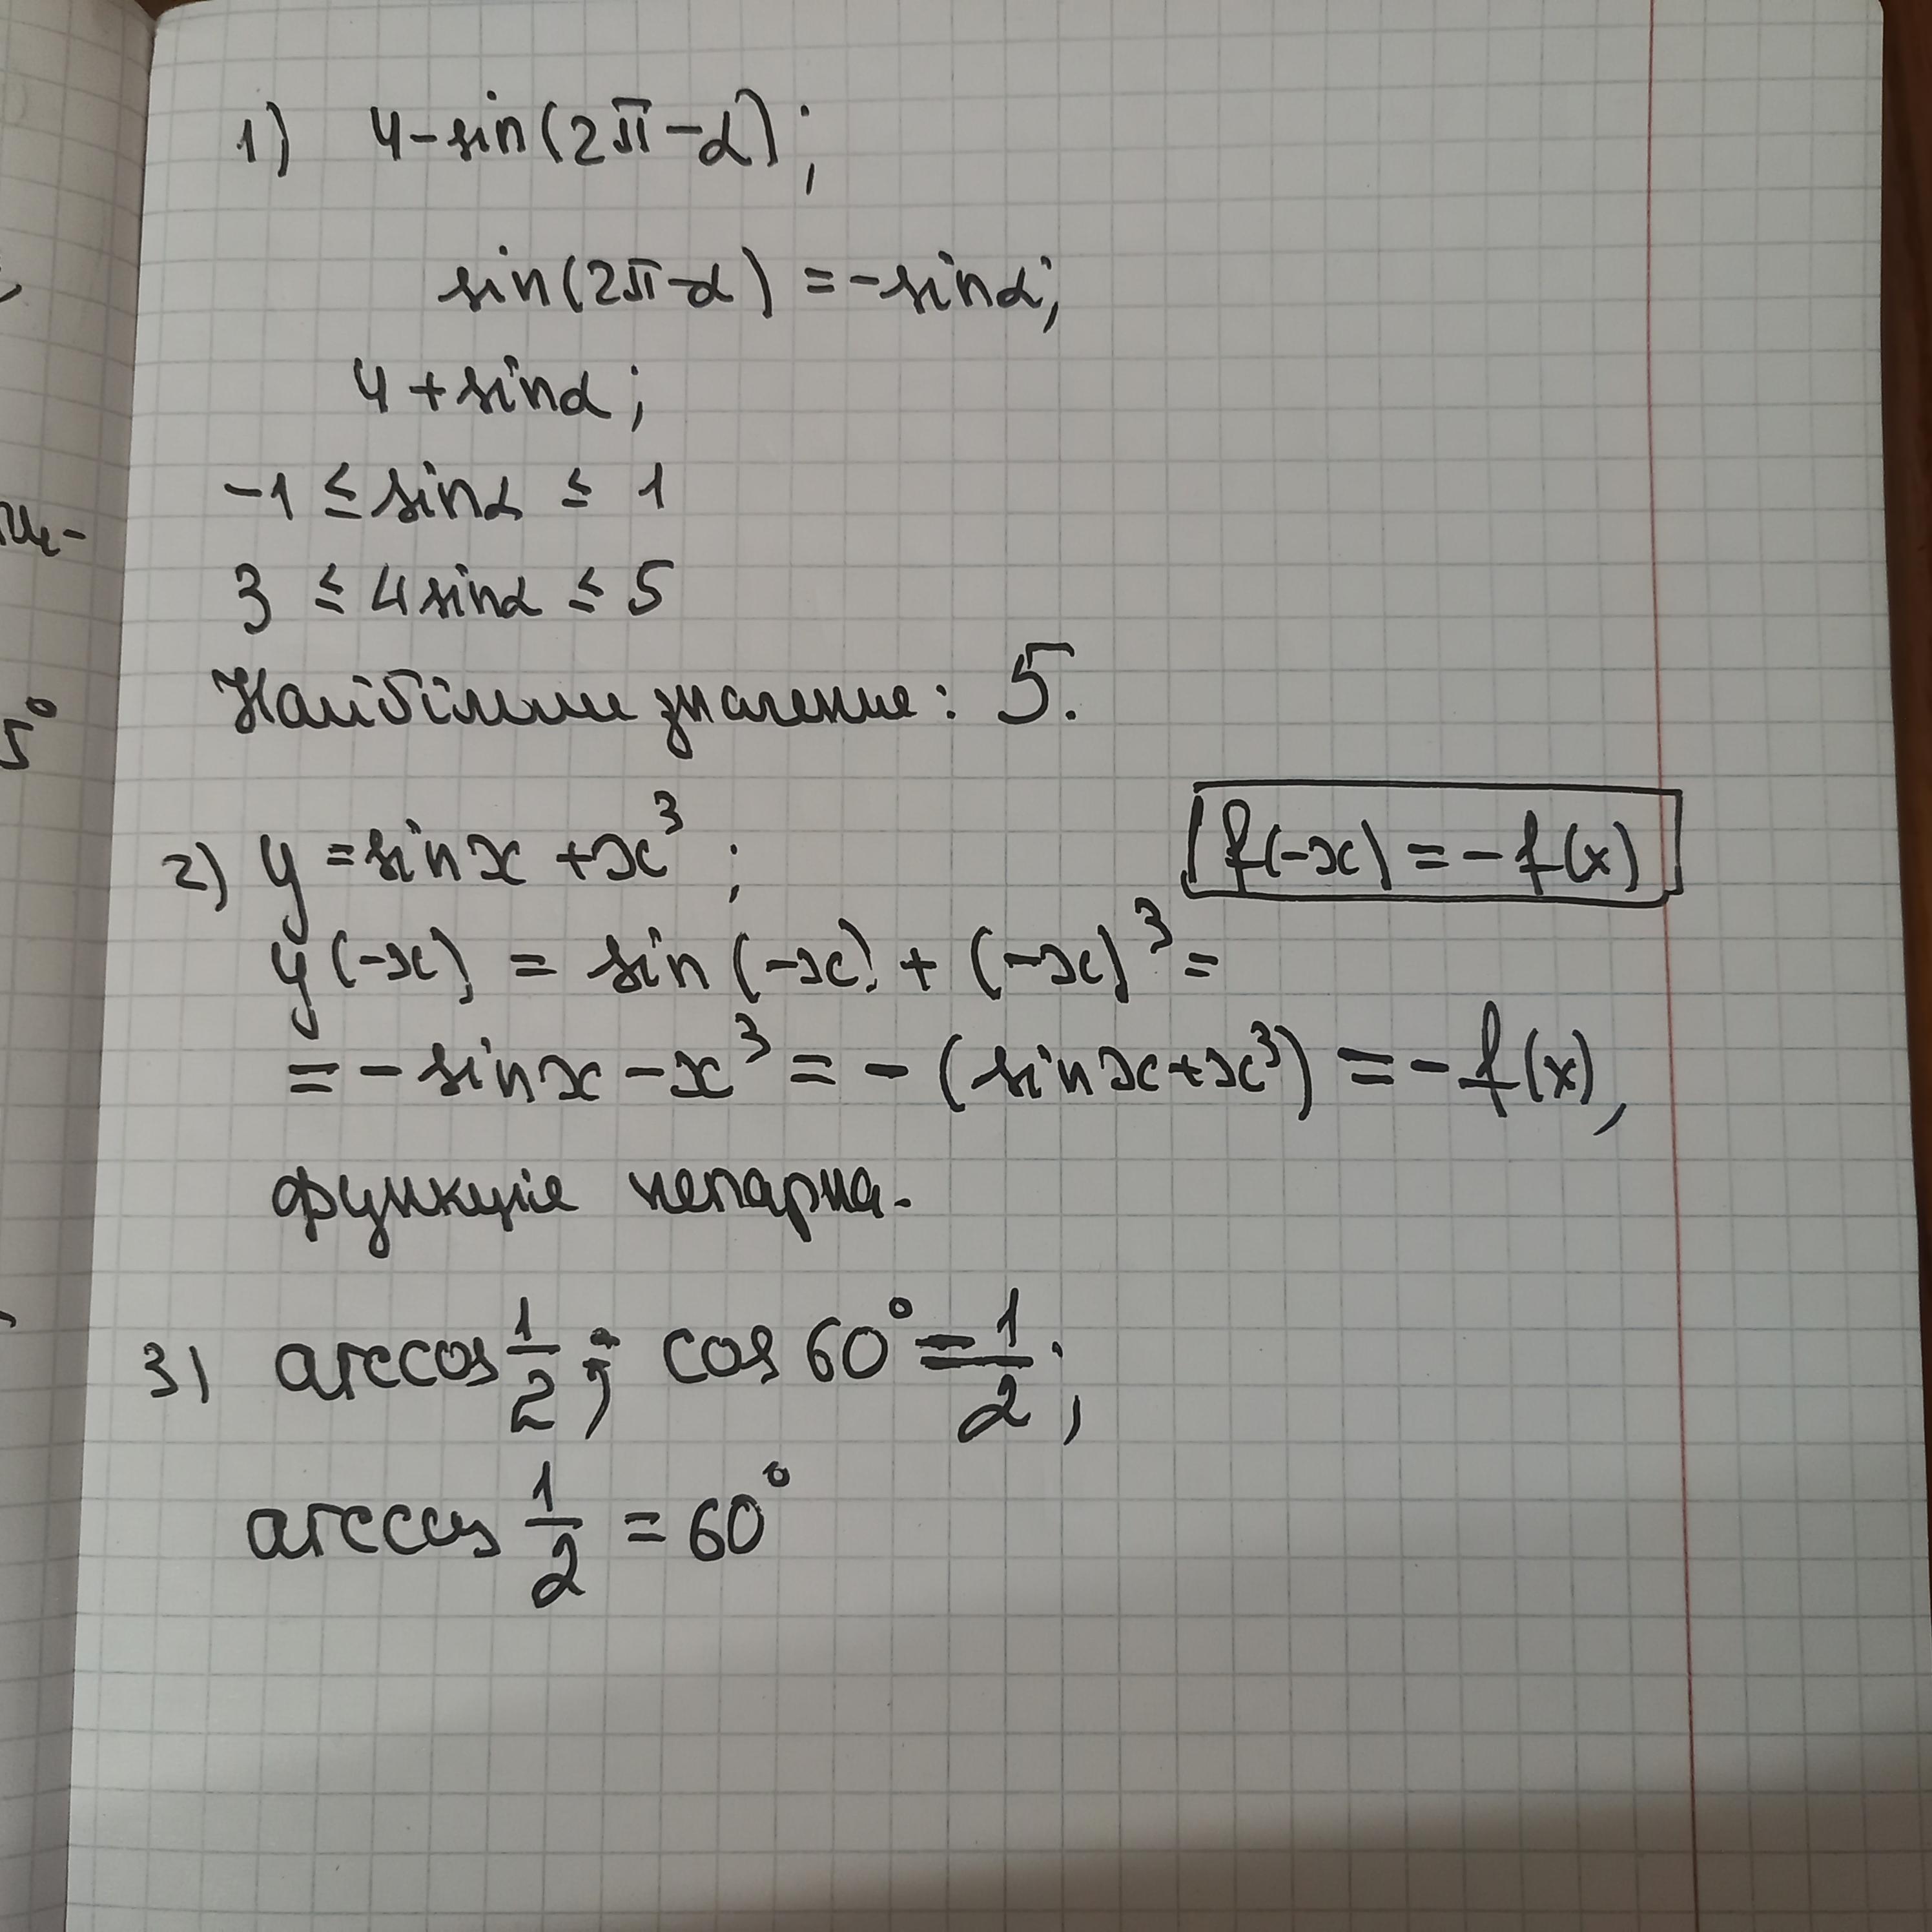 1) 4-sin(2π-α);
sin(2π-α) =-sinα;
4+sinα;
-1 ≤ sinα ≤ 1
3 ≤ 4sinα ≤ 5
Найбільше значення: 5.
2) y=sinx+x³; f(-x) = -f(x)
y(-x) = sin(-x)+(-x)³=
=-sinx-x³=-(sinx+x³) =-f(x),
функціє непарна.
3) arccos 1/2; cos 60°=1/2;
arccos 1/2 = 60°
5°